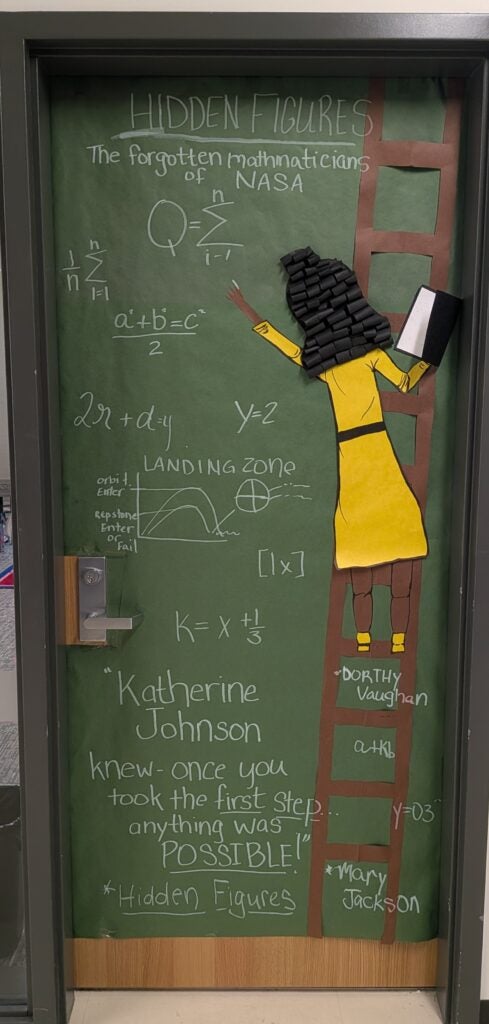 HIDDEN FIGURES
The forgotten mathmaticians
of NASA
n
Q=∑
i-1
n
1/n ∑
i=1
a²+b²=c²
2
2r+d=y
Y=2
LANDING ZONE
orbit
Enter
Repstone
Enter
or
Fail
[1x]
K=x +1/3
"Katherine
Johnson
knew-once you
took the first step...
anything was
POSSIBLE!"
*Hidden Figures
*DORTHY
Vaughan
a+kb
y=03
*Mary
Jackson